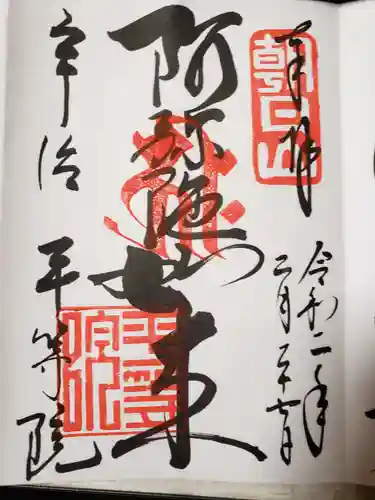 奉拝
朝日山
令和二年
二月二十六日
阿弥陀如来
宇治 平等院